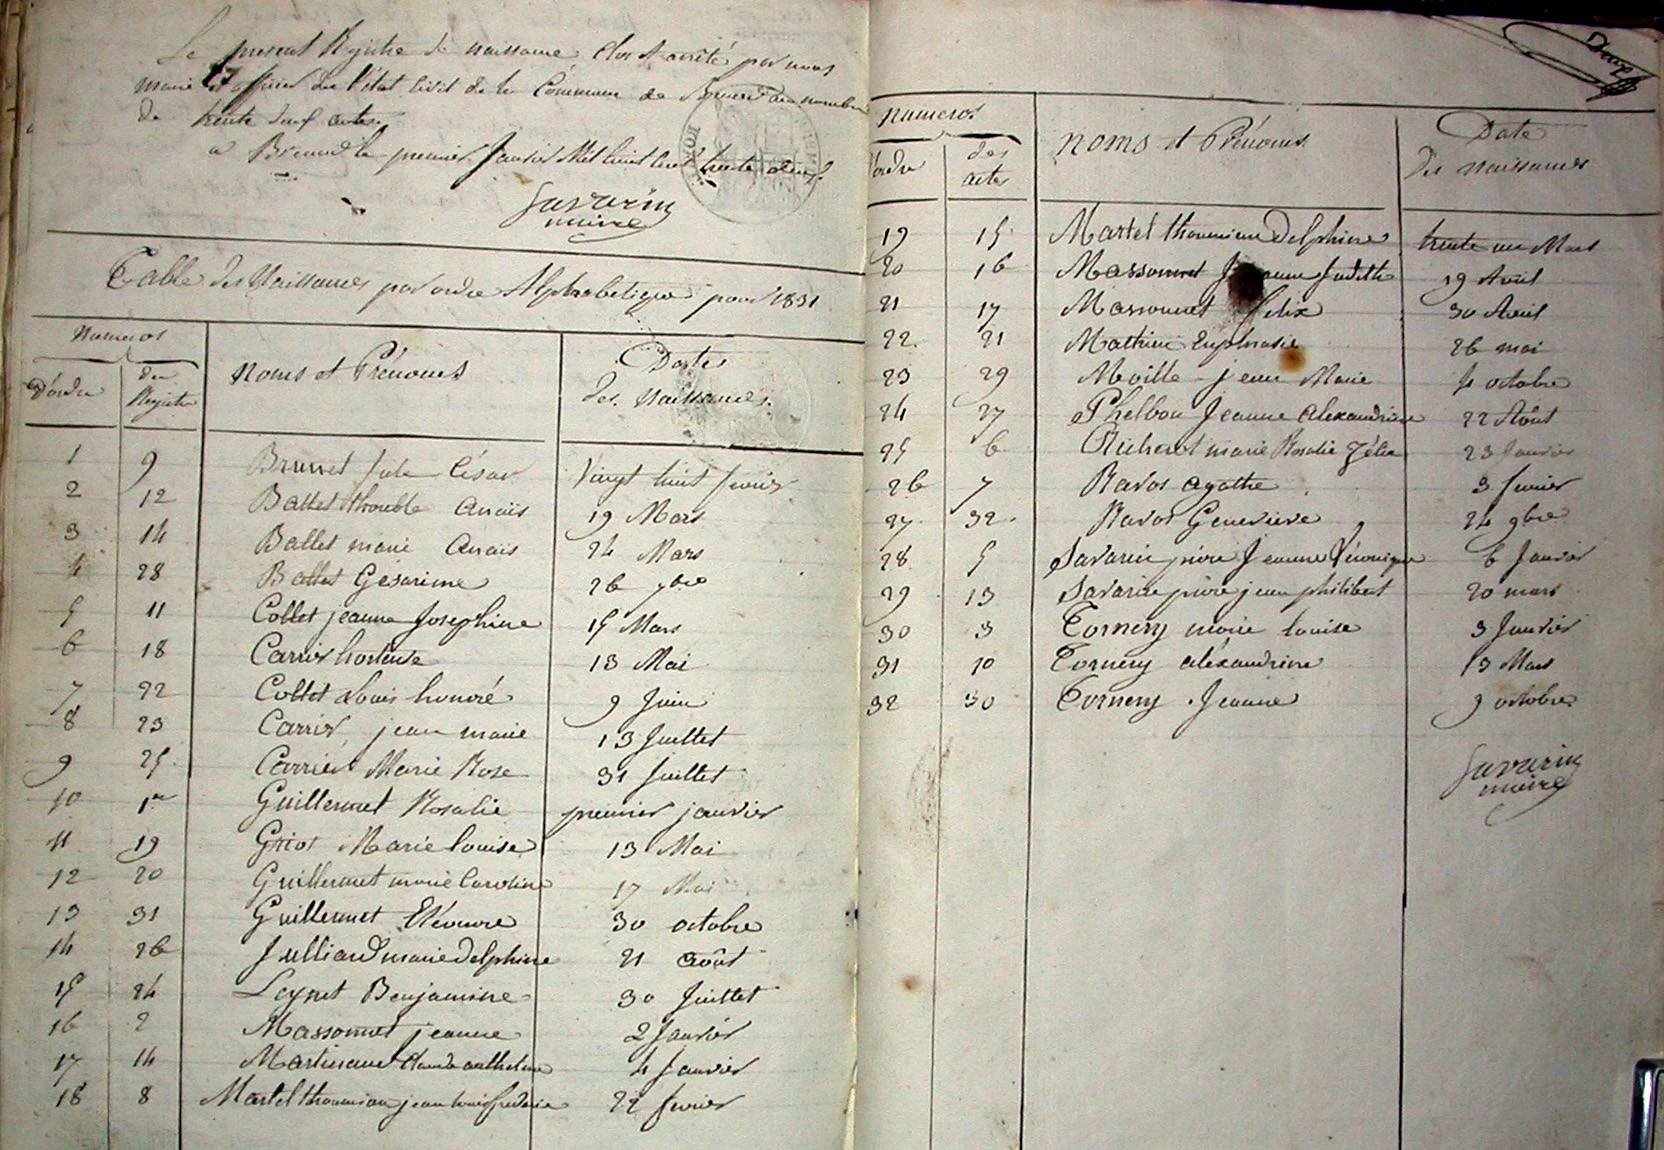 Le present Registre de naissance Clos et arrêté par nous
maire et officier de l'état Civil de la Commune de au nombre
de trente deux actes.
a le premier Janvier Mil huit cent trente deux.
Savarin
maire
Table des Naissances par ordre Alphabetique pour 1831
Numeros
D'ordre
du Registre
Noms et Prénoms
Dates
des Naissances
1 9 Brunet Jule César Vingt huit fevrier
2 12 Ballet Anaïs 19 Mars
3 14 Ballet marie Anaïs 24 Mars
4 28 Ballet Gesarine 26 7bre
5 11 Collet jeanne Josephine 15 Mars
6 18 Carrier hortense 13 Mai
7 22 Collet Louis honoré 9 Juin
8 23 Carrier jean marie 13 Juillet
9 25 Carrier Marie Rose 31 Juillet
10 1er Guillermet Rosalie premier janvier
11 19 Griot Marie louise 13 Mai
12 20 Guillermet marie Caroline 17 Mai
13 31 Guillermet Eléonore 30 octobre
14 26 Julliand marie delphine 21 Août
15 24 Leynet Benjamine 30 Juillet
16 2 Massonnet jeanne 2 Janvier
17 14 Martinand Claude anthelme 4 Janvier
18 8 Martel jean louis frederic 22 fevrier
Numeros
D'ordre
des actes
Noms et Prénoms
Date
des Naissances
19 15 Martel Delphine trente un Mars
20 16 Massonnet Jeanne Judith 19 Avril
21 17 Massonnet felix 30 Avril
22 21 Mathieu Euphrasie 26 mai
23 29 Meville jean Marie 4 octobre
24 27 Phelbon Jeanne Alexandrine 22 Août
25 6 marie Rosalie Zélie 23 Janvier
26 7 Ravos agathe 3 fevrier
27 32 Ravos Genevieve 24 9bre
28 5 Savarin pivre Jeanne Véronique 6 Janvier
29 13 Savarin pivre jean philibert 20 mars
30 3 Tornery marie louise 3 Janvier
31 10 Tornery aléxandrine 13 Mars
32 30 Tornery Jeanne 9 octobre
Savarin
maire